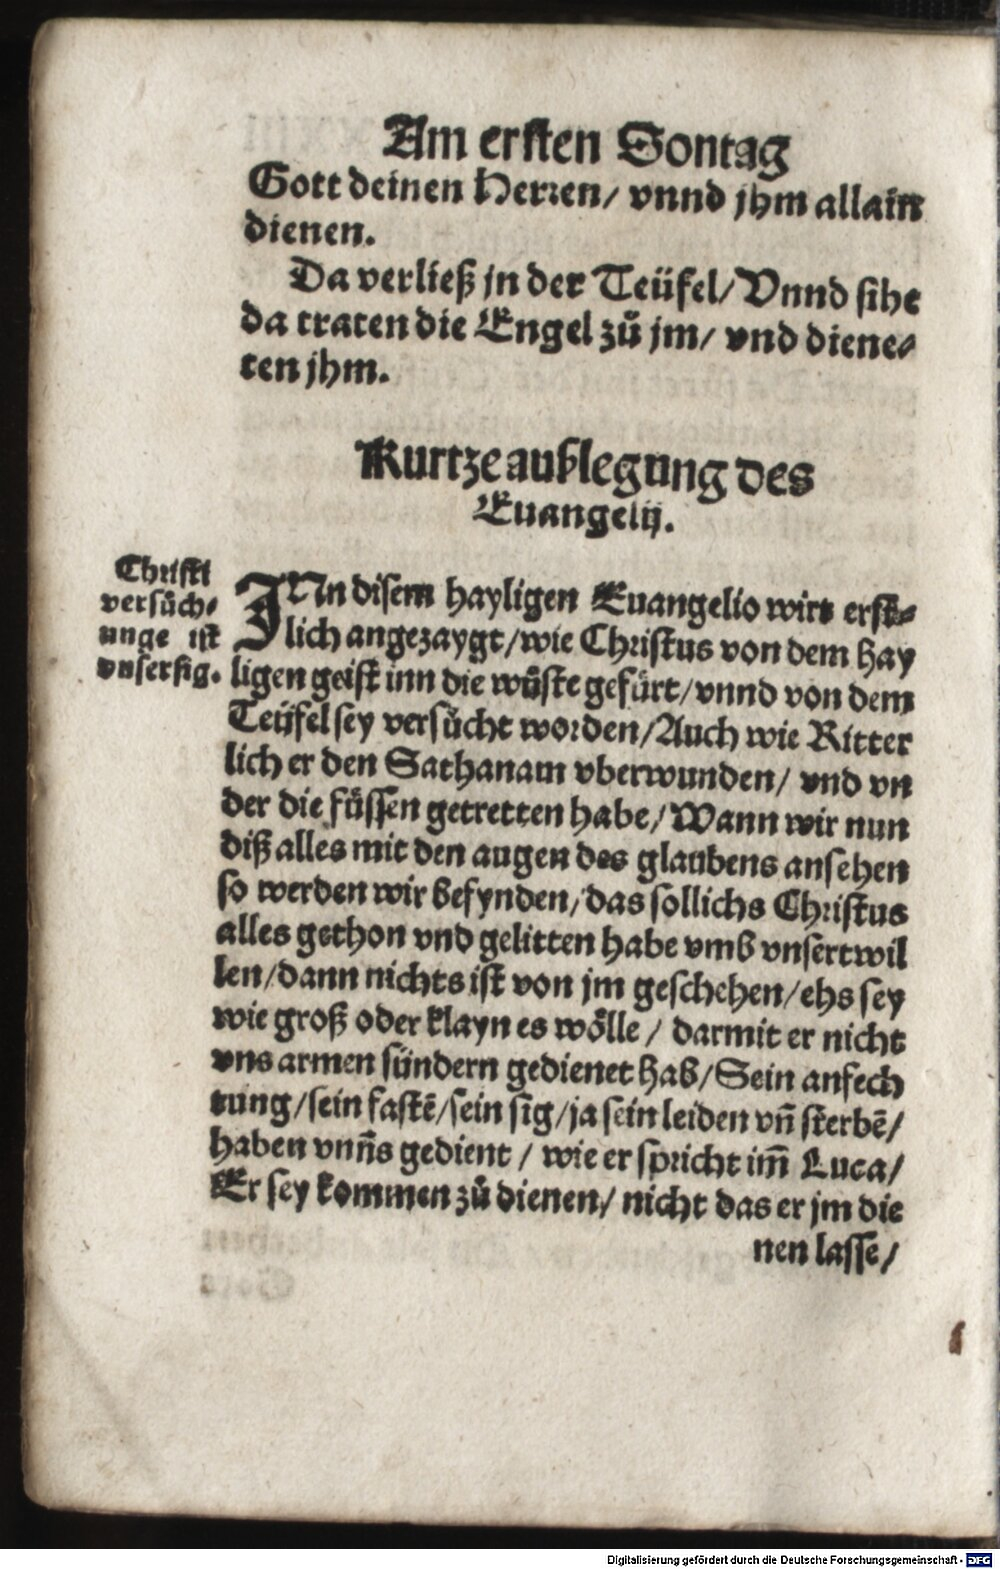 Am ersten Sontag
Gott deinen Herren/ vnnd jhm allain
dienen.
Da verließ jn der Teüfel/ Vnnd sihe
da traten die Engel zů jm/ vnd diene-
ten jhm.
Kurtze außlegung des
Euangelij.
Christi
versůch-
unge ist
vnser sig.
INn disem hayligen Euangelio wirt erst-
lich angezaygt/ wie Christus von dem hay
ligen geist inn die wůste gefürt/ vnnd von dem
Teüfel sey versůcht worden/ Auch wie Ritter
lich er den Sathanam vberwunden/ vnd vn
der die fůssen getretten habe/ Wann wir nun
diß alles mit den augen des glaubens ansehen
so werden wir befynden/ das sollichs Christus
alles gethon vnd gelitten habe vmb vnsertwil
len/ dann nichts ist von jm geschehen/ ehs sey
wie groß oder klayn es wölle / darmit er nicht
vns armen sündern gedienet hab/ Sein anfech
tung/ sein fastē/ sein sig/ ja sein leiden vñ sterbē/
haben vnñs gedient / wie er spricht im̄ Luca/
Er sey kommen zů dienen/ nicht das er jm die
nen lasse/
Digitalisierung gefördert durch die Deutsche Forschungsgemeinschaft - DFG